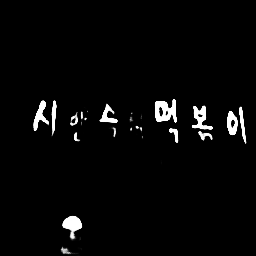 시안수 떡볶이